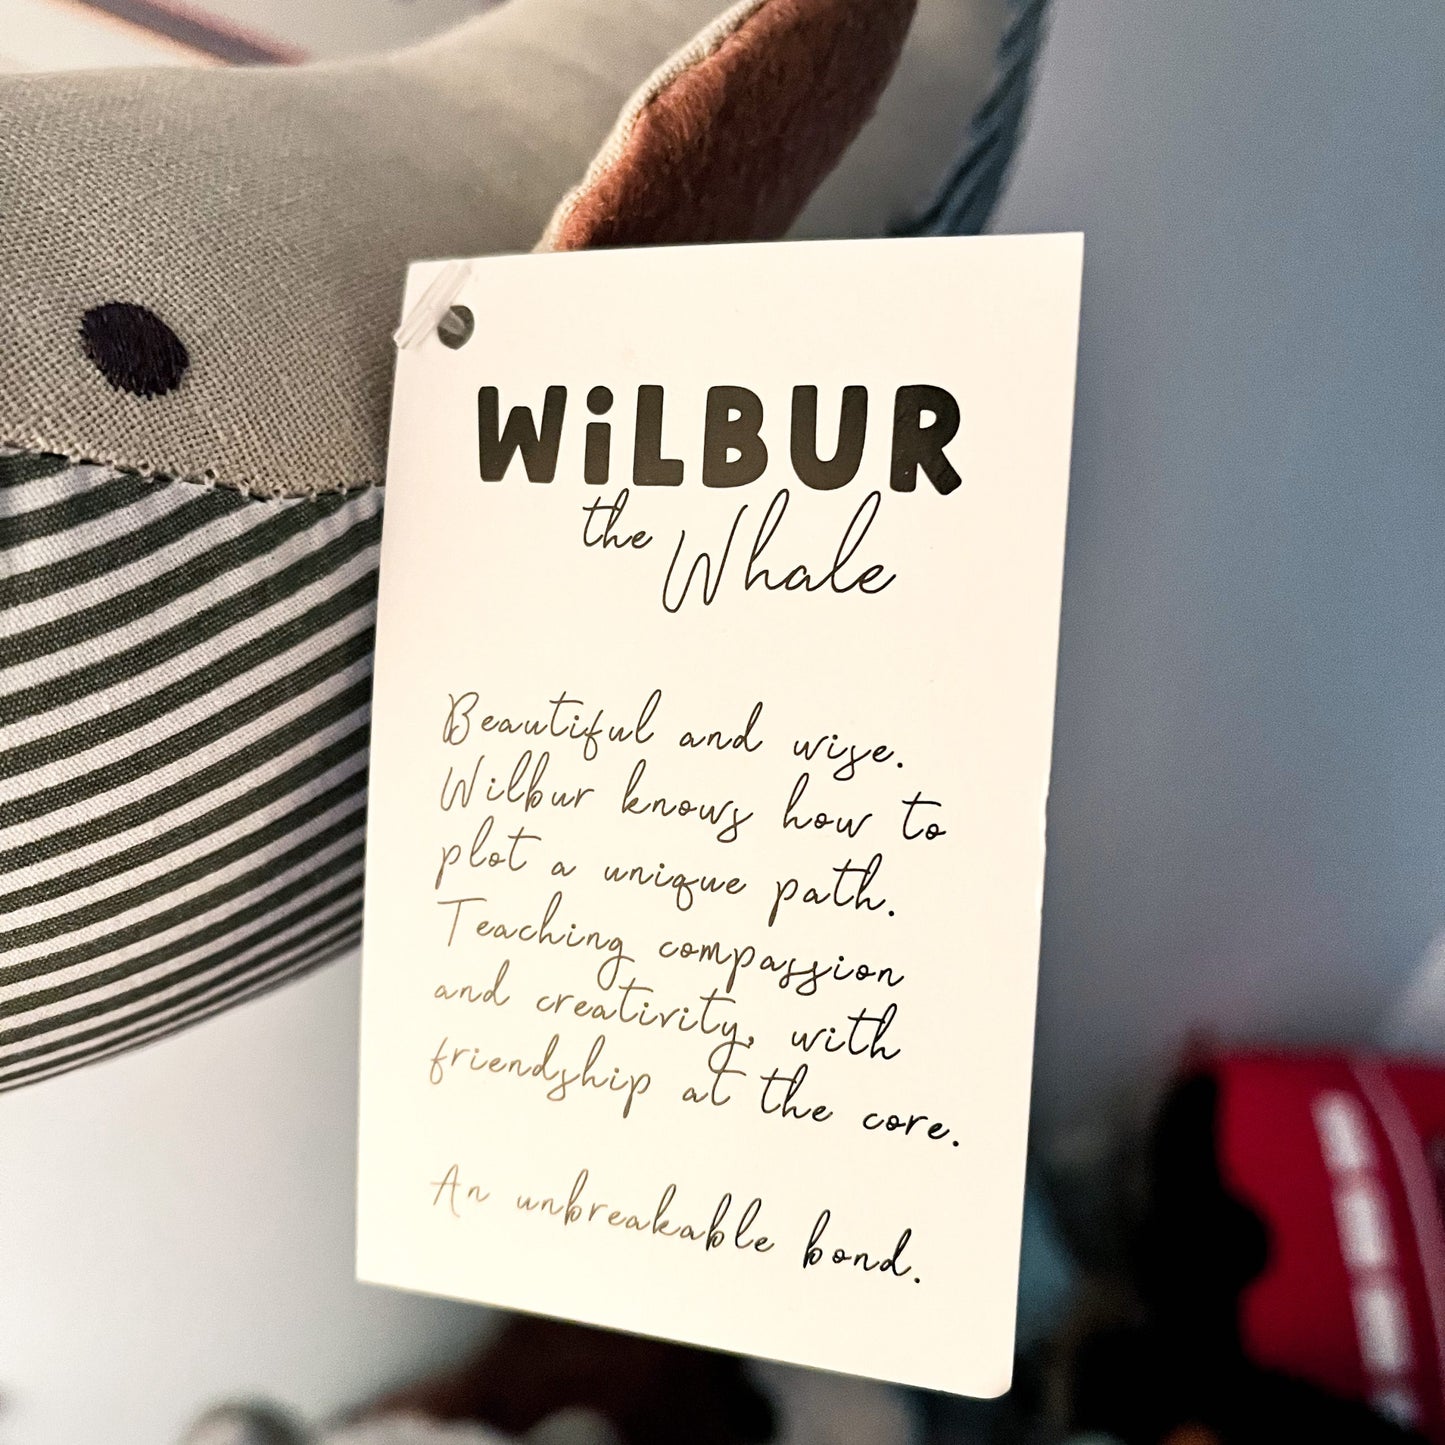 WiLBUR
the Whale
Beautiful and wise.
Wilbur knows how to
plot a unique path.
Teaching compassion
and creativity, with
friendship at the core.
An unbreakable bond.